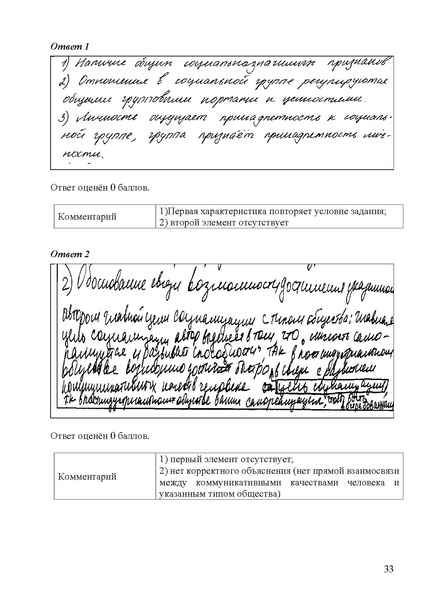 Ответ 1
1) Наличие общих социальнозначимых признаков
2) Отношения в социальной группе регулируются
общими групповыми нормами и ценностями.
3) Личность ощущает принадлежность к социаль-
ной группе, группа признаёт принадлежность лич-
ности.
Ответ оценён 0 баллов.
Комментарий
1)Первая характеристика повторяет условие задания;
2) второй элемент отсутствует
Ответ 2
2) Обоснование связи возможности достижения указанной
автором главной цели социализации с типом общества: главная
цель социализации автор в том, что
и развивать способности". Так в постиндустриальном
обществе в связи с развитием
коммуникативных качеств человека цель социализации,
так в постиндустриальном обществе важна самореализация,
Ответ оценён 0 баллов.
Комментарий
1) первый элемент отсутствует;
2) нет корректного объяснения (нет прямой взаимосвязи
между коммуникативными качествами человека и
указанным типом общества)
33